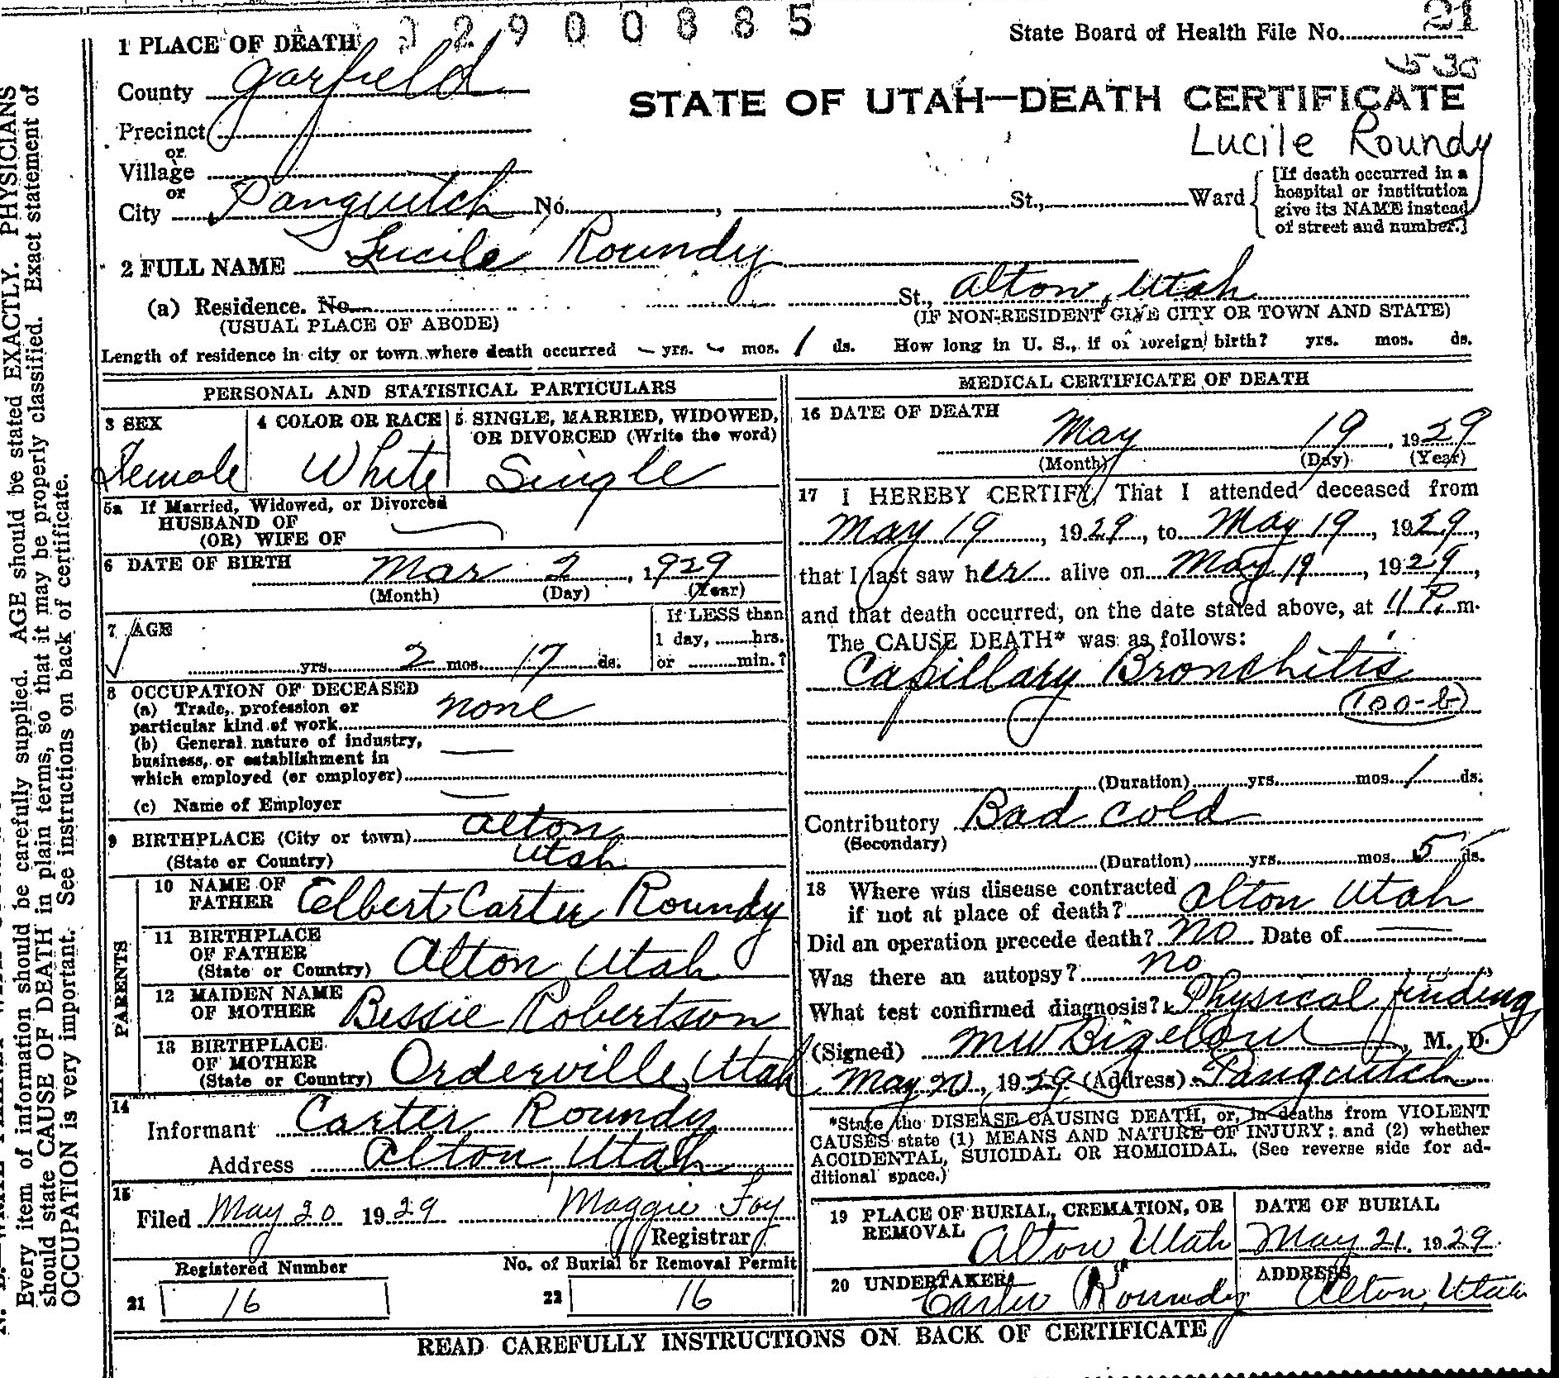 02900885
State Board of Health File No. 21
1 PLACE OF DEATH
County Garfield
STATE OF UTAH—DEATH CERTIFICATE
Precinct
Lucile Roundy
or
Village
or
City Panguitch No. , St., Ward
[If death occurred in a
hospital or institution
give its NAME instead
of street and number.]
2 FULL NAME Lucile Roundy
(a) Residence. No. St., Alton, Utah
(USUAL PLACE OF ABODE) (IF NON-RESIDENT GIVE CITY OR TOWN AND STATE)
Length of residence in city or town where death occurred – yrs. – mos. 1 ds. How long in U. S., if of foreign birth? yrs. mos. ds.
PERSONAL AND STATISTICAL PARTICULARS
3 SEX
Female
4 COLOR OR RACE
White
5 SINGLE, MARRIED, WIDOWED,
OR DIVORCED (Write the word)
Single
5a If Married, Widowed, or Divorced
HUSBAND OF
(OR) WIFE OF
6 DATE OF BIRTH Mar 2, 1929
(Month) (Day) (Year)
7 AGE
yrs. 2 mos. 17 ds.
If LESS than
1 day, hrs.
or min.?
8 OCCUPATION OF DECEASED
(a) Trade, profession or
particular kind of work none
(b) General nature of industry,
business, or establishment in
which employed (or employer)
(c) Name of Employer
9 BIRTHPLACE (City or town) Alton
(State or Country) Utah
PARENTS
10 NAME OF
FATHER Elbert Carter Roundy
11 BIRTHPLACE
OF FATHER
(State or Country) Alton Utah
12 MAIDEN NAME
OF MOTHER Bessie Robertson
13 BIRTHPLACE
OF MOTHER
(State or Country) Orderville, Utah
14
Informant Carter Roundy
Address Alton Utah
15
Filed May 20 1929 Maggie Foy
Registrar
Registered Number
21 16
No. of Burial or Removal Permit
22 16
MEDICAL CERTIFICATE OF DEATH
16 DATE OF DEATH
May 19, 1929
(Month) (Day) (Year)
17 I HEREBY CERTIFY, That I attended deceased from
May 19, 1929, to May 19, 1929,
that I last saw her alive on May 19, 1929,
and that death occurred, on the date stated above, at 11 P. m.
The CAUSE DEATH* was as follows:
Capillary Bronchitis
100-b
(Duration) yrs. mos. 1 ds.
Contributory Bad cold
(Secondary)
(Duration) yrs. mos. 5 ds.
18 Where was disease contracted
if not at place of death? Alton Utah
Did an operation precede death? no Date of
Was there an autopsy? no
What test confirmed diagnosis? Physical finding
(Signed) M W Bigelow, M. D.
May 20, 1929 (Address) Panguitch
*State the DISEASE CAUSING DEATH, or, in deaths from VIOLENT
CAUSES state (1) MEANS AND NATURE OF INJURY; and (2) whether
ACCIDENTAL, SUICIDAL OR HOMICIDAL. (See reverse side for ad-
ditional space.)
19 PLACE OF BURIAL, CREMATION, OR
REMOVAL Alton Utah
DATE OF BURIAL
May 21, 1929
20 UNDERTAKER
Carter Roundy
ADDRESS
Alton, Utah
READ CAREFULLY INSTRUCTIONS ON BACK OF CERTIFICATE
Every item of information should be carefully supplied. AGE should be stated EXACTLY. PHYSICIANS
should state CAUSE OF DEATH in plain terms, so that it may be properly classified. Exact statement of
OCCUPATION is very important. See instructions on back of certificate.